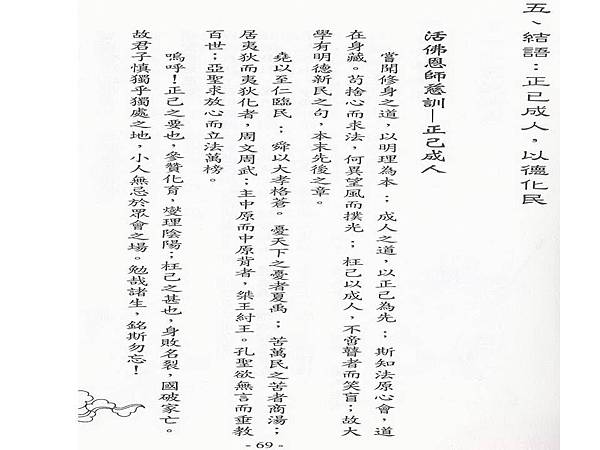 五、結語：正己成人，以德化民
活佛恩師慈訓—正己成人
嘗聞修身之道，以明理為本；成人之道，以正己為先；斯知法原心會，道
在身藏。苟捨心而求法，何異望風而撲光；枉己以成人，不啻聾者而笑盲；故大
學有明德新民之句，本末先後之章。
堯以至仁臨民；舜以大孝格蒼。憂天下之憂者夏禹；苦萬民之苦者商湯；
居夷狄而夷狄化者，周文周武；主中原而中原背者，桀王紂王。孔聖欲無言而垂教
百世；亞聖求放心而立法萬榜。
嗚呼！正己之要也，參贊化育，燮理陰陽；枉己之甚也，身敗名裂，國破家亡。
故君子慎獨乎獨處之地，小人無忌於眾會之場。勉哉諸生，銘斯勿忘！
- 69 -